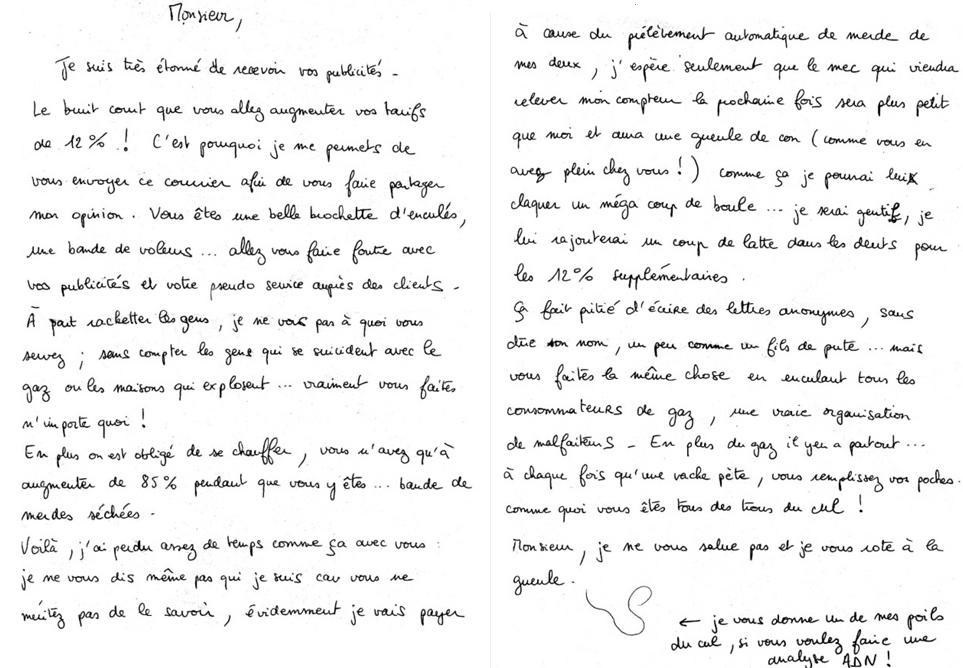 Monsieur,
Je suis très étonné de recevoir vos publicités -
Le bruit court que vous allez augmenter vos tarifs
de 12% ! C'est pourquoi je me permets de
vous envoyer ce courrier afin de vous faire partager
mon opinion. Vous êtes une belle brochette d'enculés,
une bande de voleurs ... allez vous faire foutre avec
vos publicités et votre pseudo service auprès des clients -
À part racketter les gens, je ne vois pas à quoi vous
servez ; sans compter les gens qui se suicident avec le
gaz ou les maisons qui explosent ... vraiment vous faites
n'importe quoi !
En plus on est obligé de se chauffer, vous n'avez qu'à
augmenter de 85% pendant que vous y êtes ... bande de
merdes séchées -
Voilà, j'ai perdu assez de temps comme ça avec vous :
je ne vous dis même pas qui je suis car vous ne
méritez pas de le savoir, évidemment je vais payer
à cause du prélèvement automatique de merde de
mes deux, j'espère seulement que le mec qui viendra
relever mon compteur la prochaine fois sera plus petit
que moi et aura une gueule de con (comme vous en
avez plein chez vous !) comme ça je pourai lui
claquer un méga coup de boule ... je serai gentil, je
lui rajouterai un coup de latte dans les dents pour
les 12% supplémentaires.
Ça fait pitié d'écrire des lettres anonymes, sans
dire son nom, un peu comme un fils de pute ... mais
vous faites la même chose en enculant tous les
consommateurs de gaz, une vraie organisation
de malfaiteurs - En plus du gaz il y en a partout ...
à chaque fois qu'une vache pète, vous remplissez vos poches.
comme quoi vous êtes tous des trous du cul !
Monsieur, je ne vous salue pas et je vous rote à la
gueule.
← je vous donne un de mes poils
du cul, si vous voulez faire une
analyse ADN !